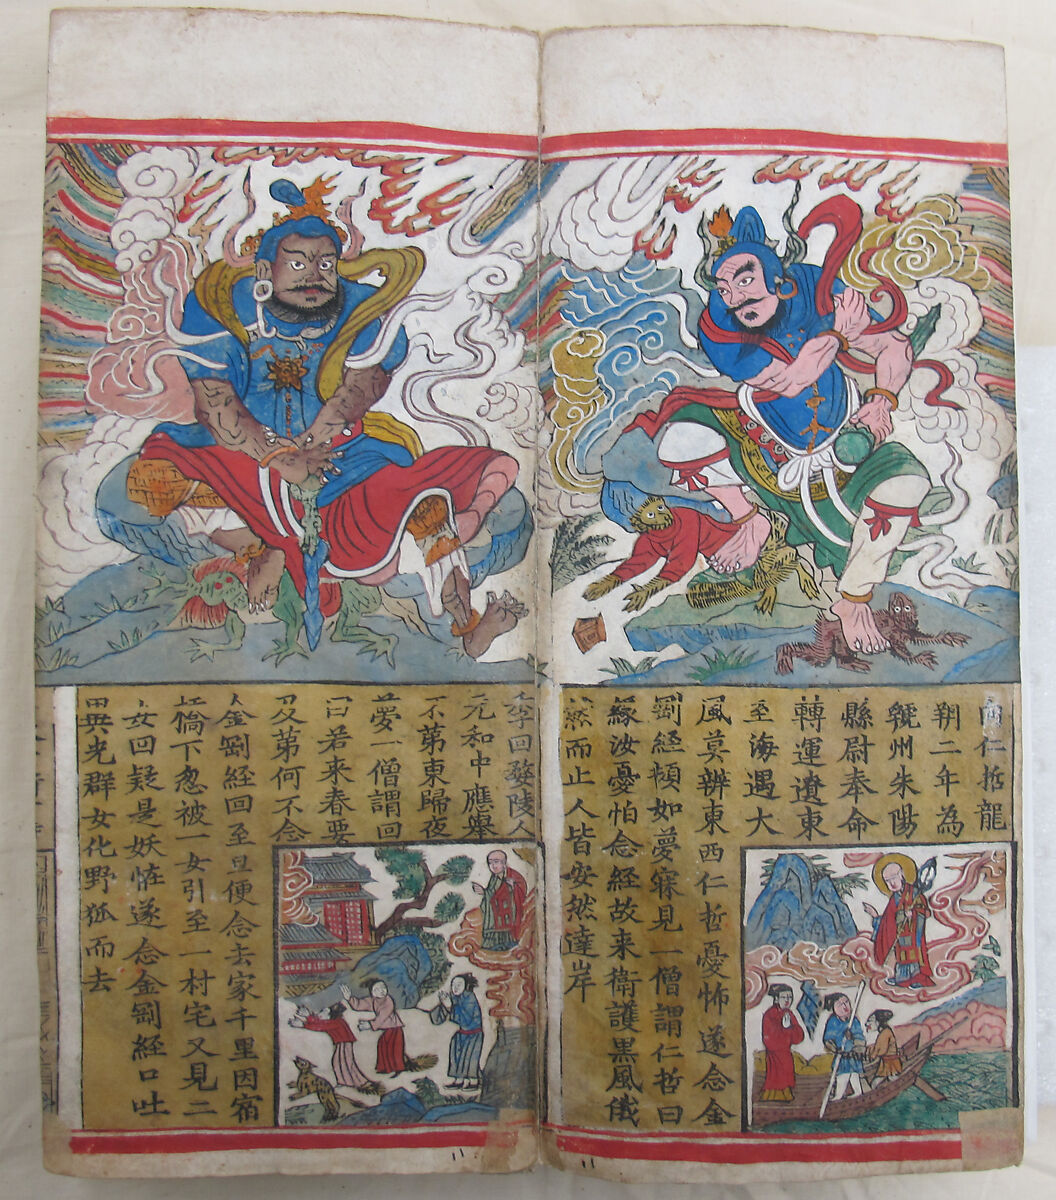 仁哲龍
朔二年為
虢州朱陽
縣尉奉命
轉運遼東
至海遇大
風莫辨東西仁哲憂怖遂念金
剛經頻如夢寐見一僧謂仁哲曰
緣汝憂怕念經故来衛護黑風俄
然而止人皆安然達岸
李回婺陵人
元和中應舉
不第東歸夜
夢一僧謂回
曰若来春要
及第何不念
金剛經回至旦便念去家千里因宿
橋下忽被一女引至一村宅又見二
女回疑是妖怪遂念金剛經口吐
異光群女化野狐而去